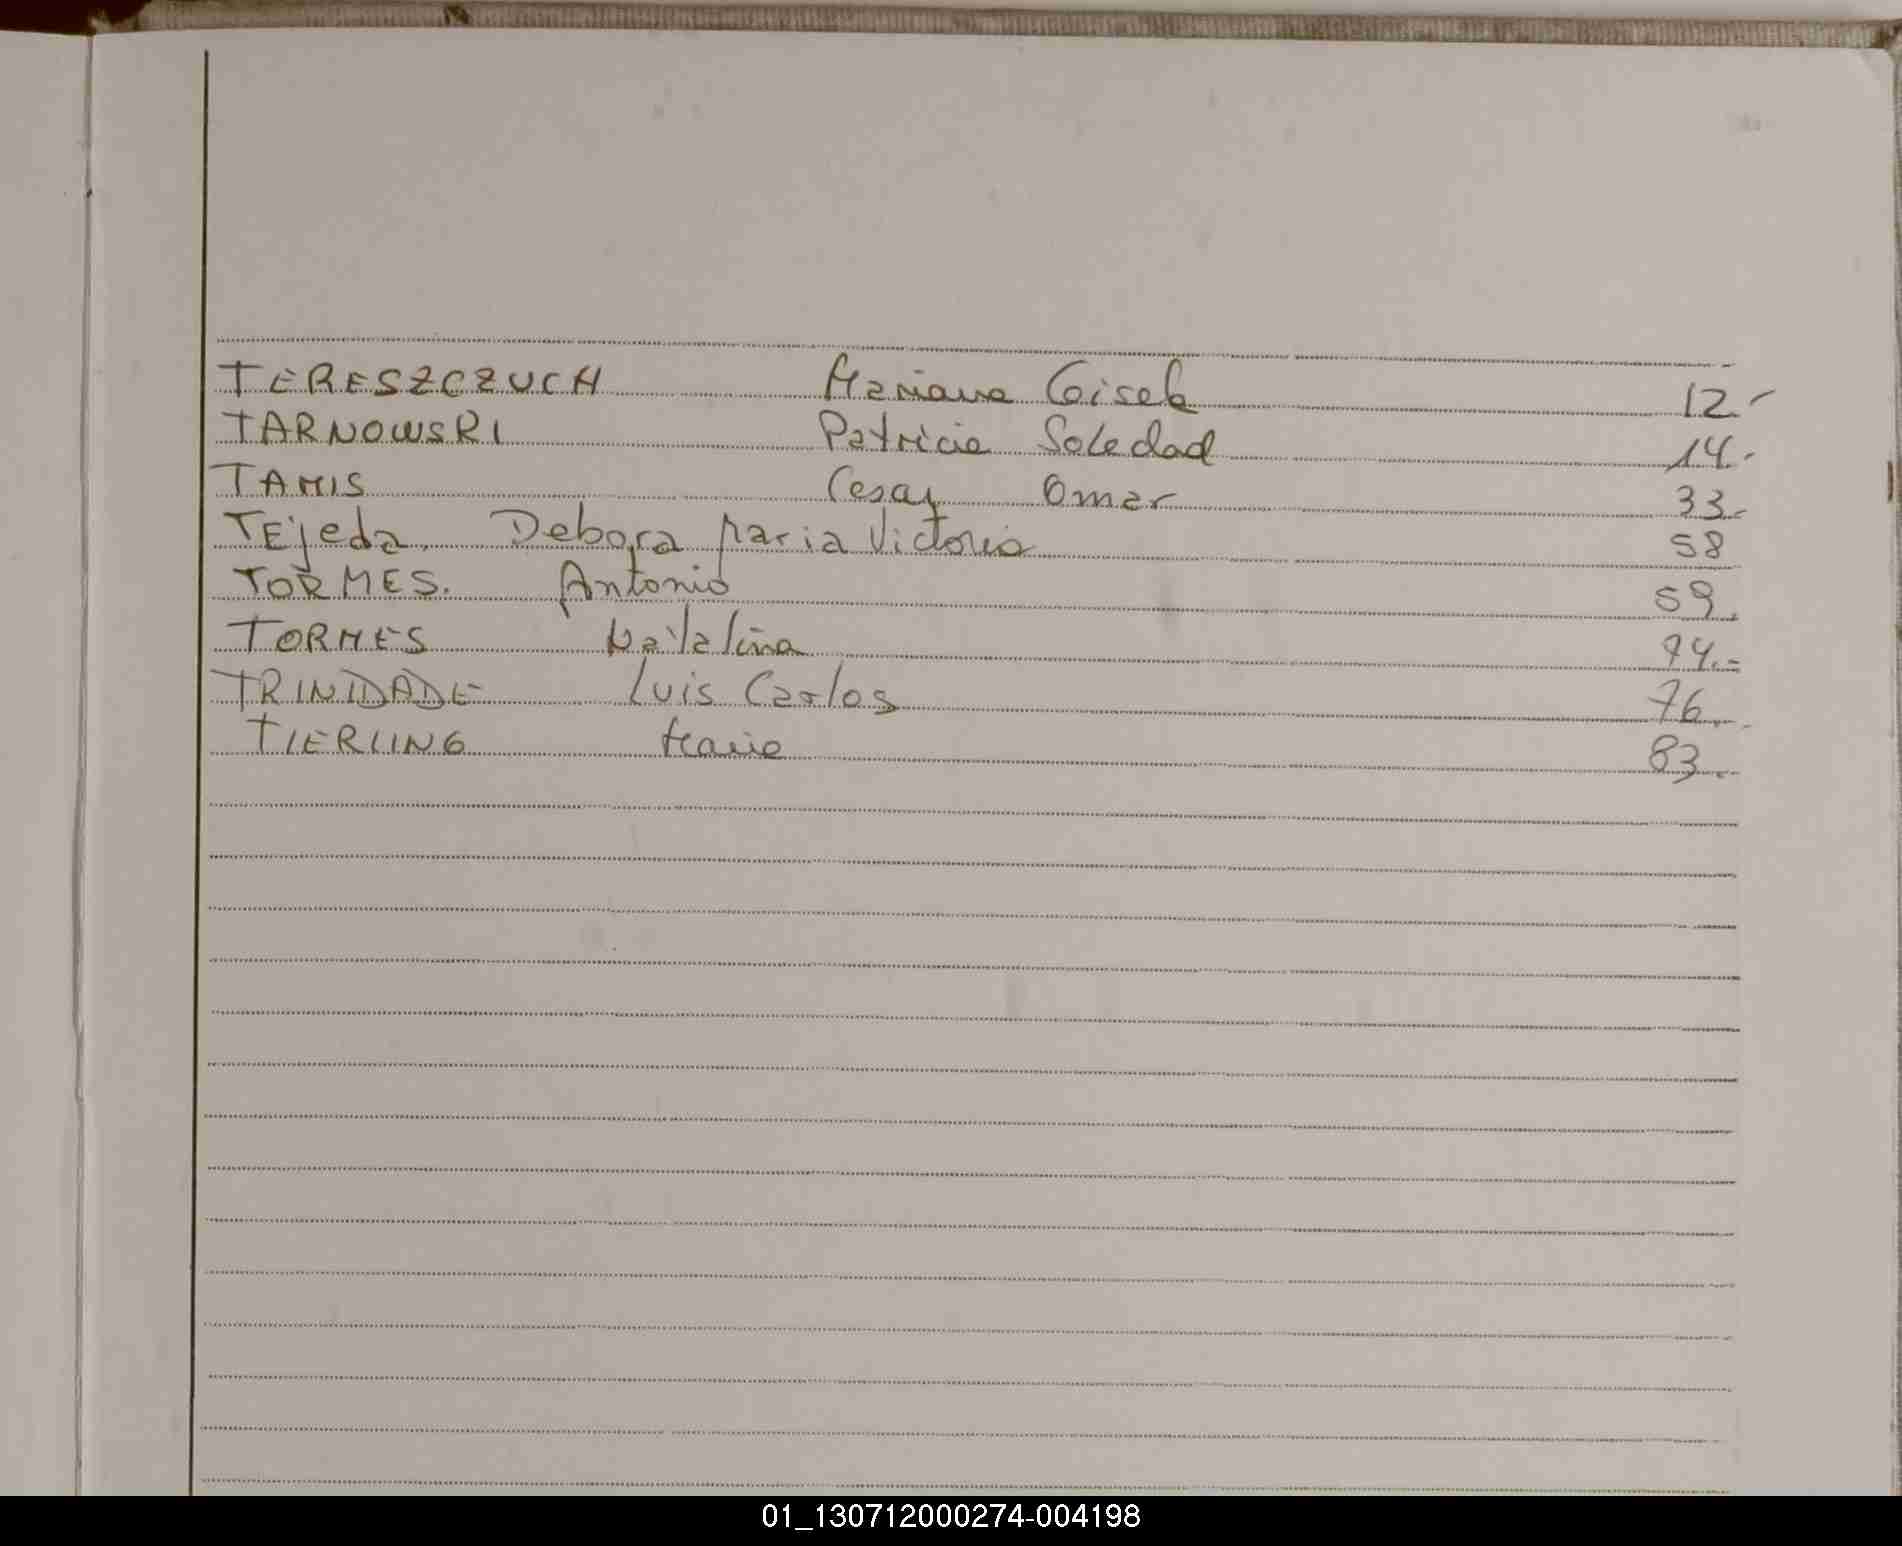 TERESZCZUCH Mariana Gisela 12.-
TARNOWSKI Patricia Soledad 14.-
TAMIS Cesar Omar 33.-
TEjeda. Debora Maria Victoria 58
TORMES. Antonio 59.
TORMES Natalina 74.-
TRINIDADE Luis Carlos 76.-
TIERLING Maria 83.-
01_130712000274-004198